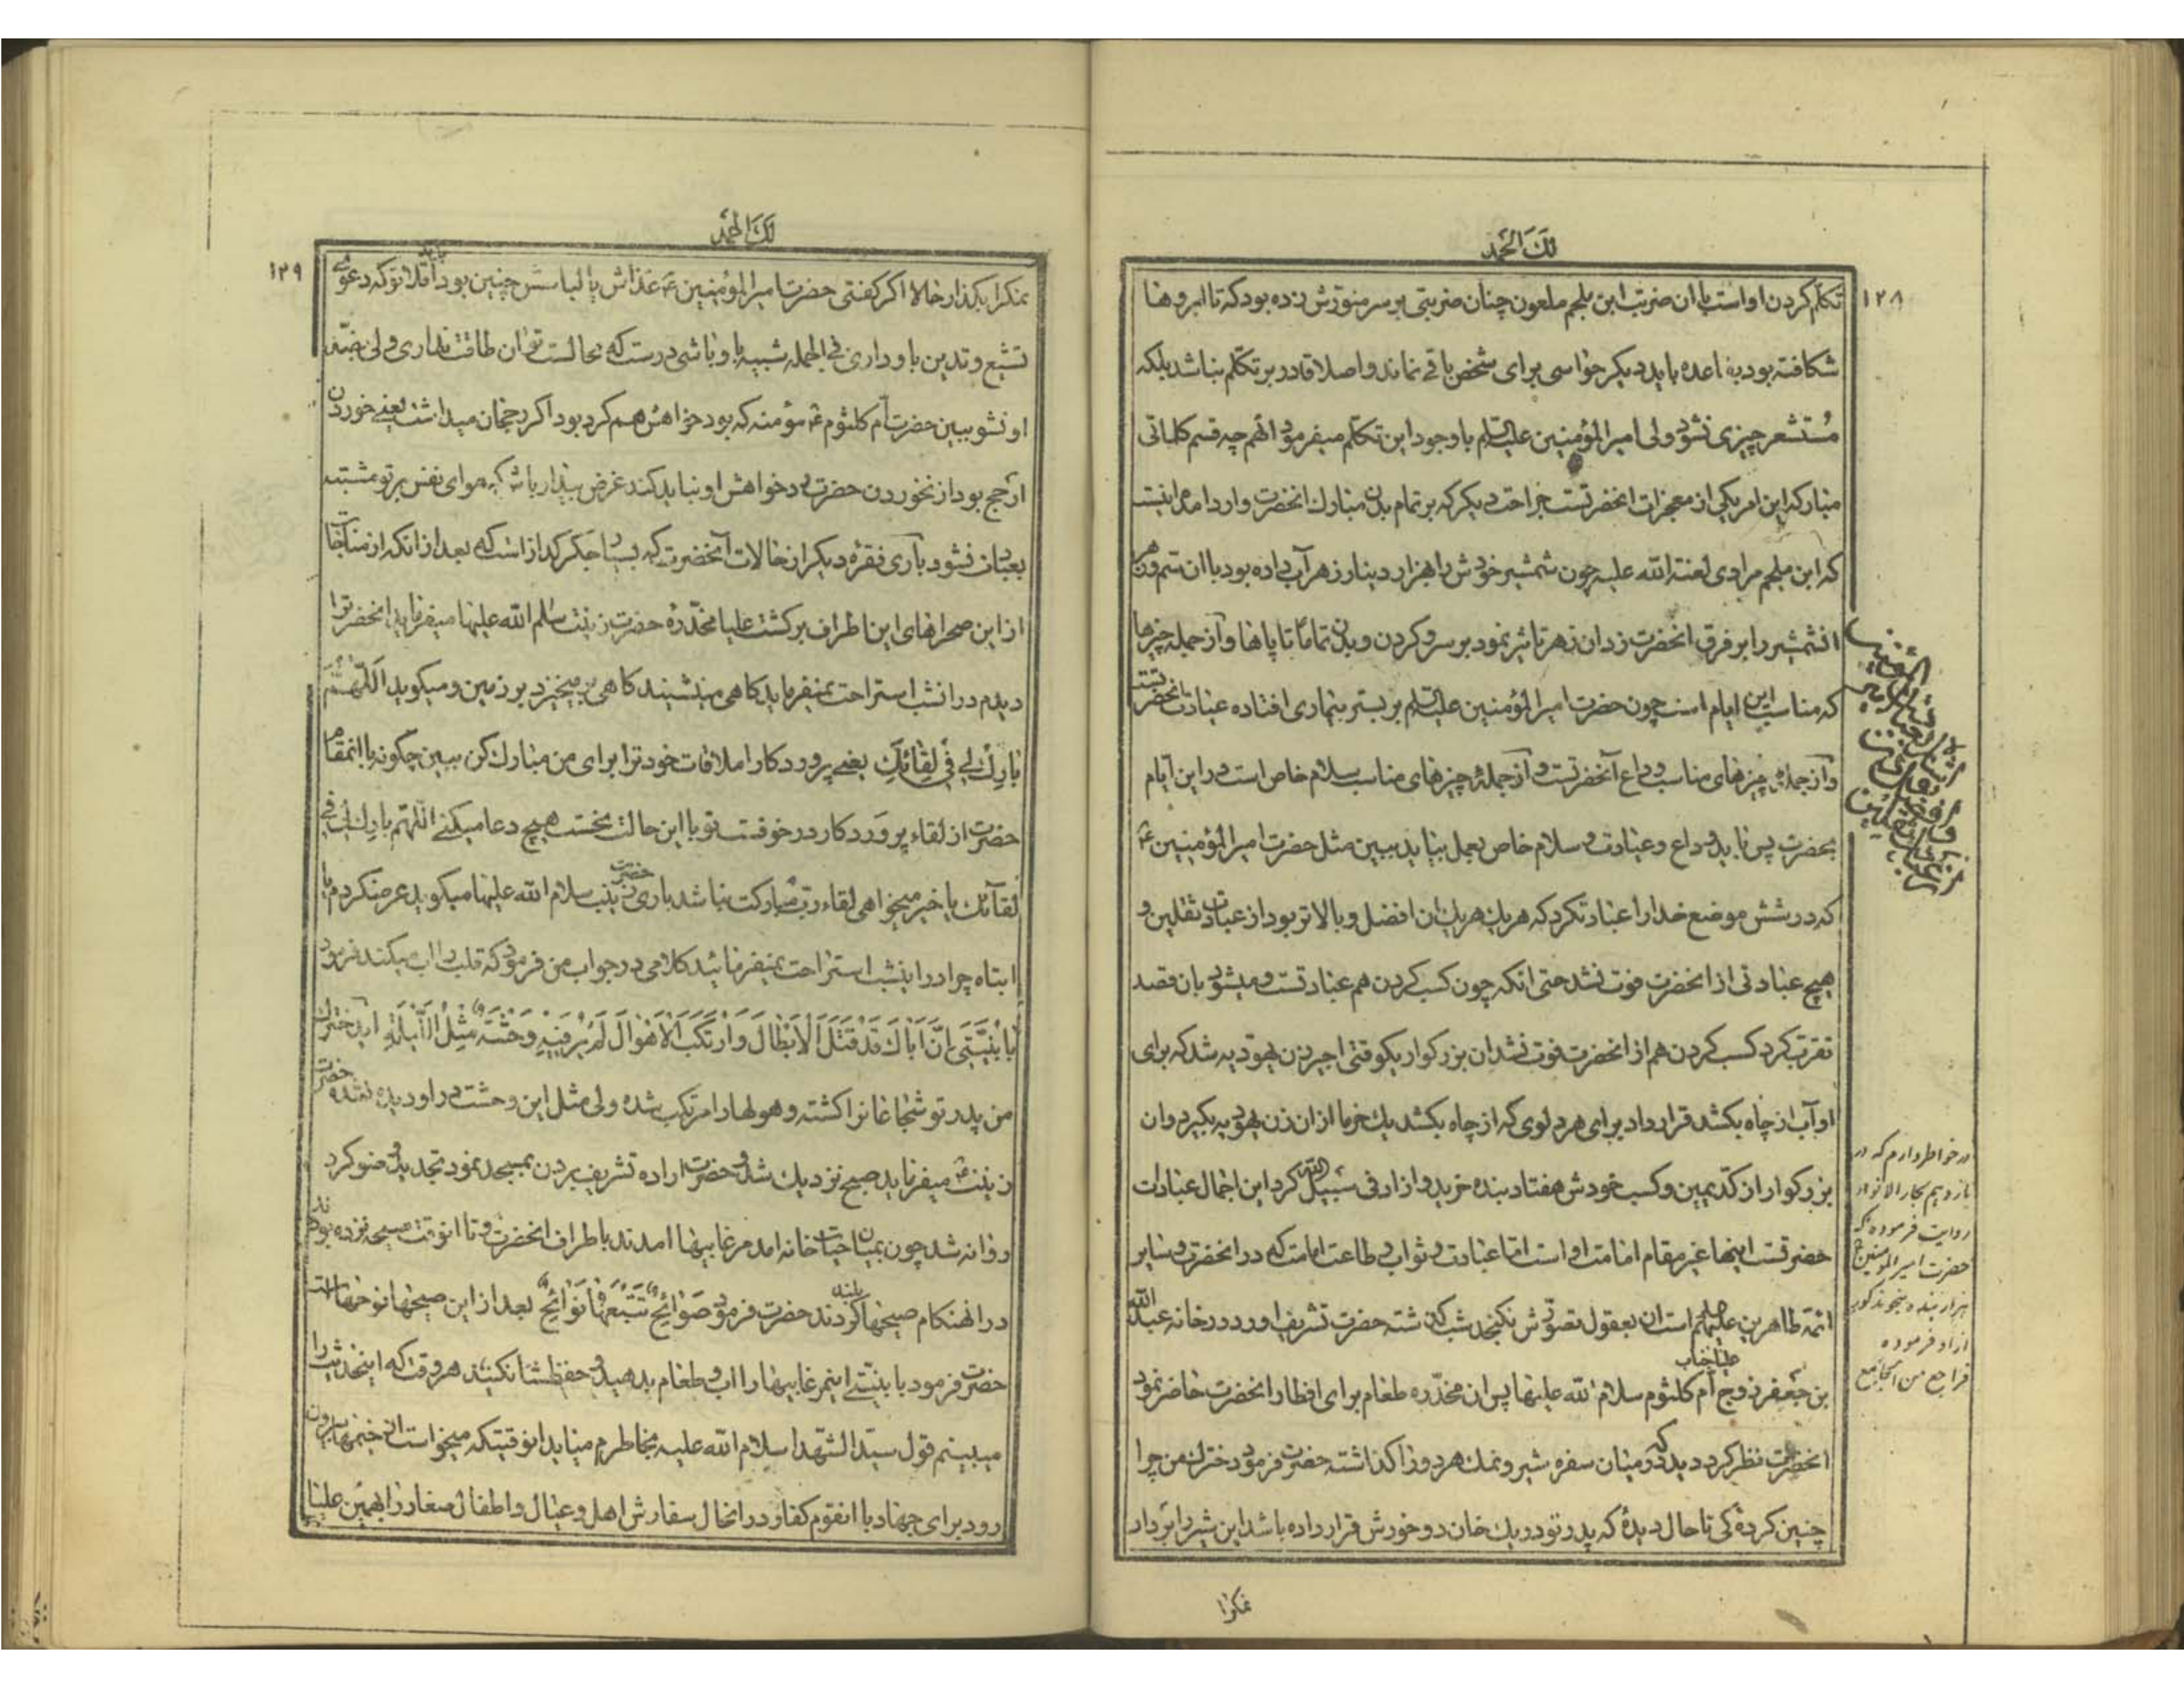 لك الحمد
١٢٨
تکلم کردن او است با ان ضربت ابن ملجم ملعون چنان ضربتی بر سر منورش زده بود که تا ابروها
شکافته بود بقاعده باید دیکر حواسی برای شخص باقی نماند و اصلا قادر بر تکلم نباشد بلکه
مستشعر چیزی نشود ولی امیر المؤمنین علیه السلم باوجود این تکلم میفرمود انهم چه قسم کلماتی
مبارکه این امر یکی از معجزات انحضرتست جراحت دیکر که بر تمام بدن مبارك انحضرت وارد امد اینست
که ابن ملجم مرادی لعنة الله علیه چون شمشیر خودش را هزار دینار زهر آب داده بود با ان سم و زهر
انشمشیر را بر فرق انحضرت زد ان زهر تاثیر نمود بر سر و کردن و بدن تماما تا پاها و از جمله چیزها
که مناسب این ایام است چون حضرت امیر المؤمنین علیه السلم بر بستر بیماری افتاده عیادت انحضرتست
و از جمله چیزهای مناسب وداع آنحضرتست و از جملۀ چیزهای مناسب سلام خاص است در این ایام
بحضرت پس باید وداع و عیادت و سلام خاص بعمل بیاید ببین مثل حضرت امیر المؤمنین ع
که در شش موضع خدا را عبادت کرد که هر یك هر یك ان افضل و بالاتر بود از عبادت ثقلین و
هیچ عبادتی از انحضرت فوت نشد حتی انکه چون کسب کردن هم عبادتست و میشود بان قصد
تقرب کرد کسب کردن هم از انحضرت فوت نشد ان بزرکوار یکوقتی اجیر زن یهودیه شد که برای
او آب از چاه بکشد قرار داد برای هر دلوی که از چاه بکشد یك خرما از ان زن یهودیه بکیرد و ان
بزرکوار از کد یمین و کسب خودش هفتاد بنده خرید و ازاد فی سبیل الله کرد این اجمال عبادات
حضرتست اینها غیر مقام امامت او است اما عبادت و ثواب و طاعت امامت که در انحضرت و سایر
ائمه طاهرین علیهم است ان بعقول تصورش نکنجد شب کذشته حضرت تشریف اورد در خانه عبد الله
بن جعفر زوج علیا جناب ام کلثوم سلام الله علیها پس ان مخدره طعام برای افطار انحضرت حاضر نمود
انحضرت نظر کرد دید که در میان سفره شیر و نمك هر دو را کذاشته حضرت فرمود دخترك من چرا
چنین کردۀ کی تا حال دیدۀ که پدر تو در یك خان دو خورش قرار داده باشد این شیر را بردار
نمکرا
در خواطر دارم که در
یازدهم بحار الانوار
روایت فرموده که
حضرت امیر المؤمنین ع
هزار بنده بخودکویه
ازاد فرموده
لك الحمد
١٢٩
نمکرا بکذار حالا اکر کفتی حضرت امیر المؤمنین ع غذاش یا لباسش چنین بود اقلا تو که دعوی
تشیع و تدین باو داری فی الجمله شبیه باو باشی درست که بحالت تو ان طاقت نداری ولی بضد
او نشو ببین حضرت ام کلثوم ع مؤمنه که بود خواهش هم کرد بود اکر رجحان میداشت یعنی خوردن
ارجح بود از نخوردن حضرت رد خواهش او نباید کند غرض بیدار باش که هوای نفس بر تو مشتبه
بعبادت نشود باری فقرۀ دیکر از حالات آنحضرت که بسیار جکر کداز است که بعد از انکه از مناجات
از این صحراهای این اطراف برکشت علیا مخدرۀ حضرت زینب سلام الله علیها میفرماید انحضرت را
دیدم در انشب استراحت نمیفرماید کاهی مینشیند کاهی بر میخیزد بر زمین و میکوید اللهم
بارك لی فی لقائك یعنی پروردکارا ملاقات خودت را برای من مبارك کن ببین چکونه با انمقام
حضرت از لقاء پروردکار در خوفست تو با این حالت نخست هیچ دعا میکنی اللهم بارك لی فی
لقائك یا خیر میخواهی لقاء رب مبارکت نباشد باری حضرت زینب سلام الله علیها میکوید عرضکردم یا
ابتاه چرا در اینشب استراحت نمیفرمائید کلامی در جواب من فرمود که قلب را اب میکند فرمود
یا بنیتی ان اباك قد قتل الابطال و ارتکب الاهوال لم یر فیه وحشة مثل اللیلة ایدخترك
من پدر تو شجاعانرا کشته و هولها را مرتکب شده ولی مثل این وحشت در او دیده نشده حضرت
زینب ع میفرماید صبح نزدیك شد و حضرت اراده تشریف بردن بمسجد نمود تجدید وضو کرد
روانه شد چون بمیان حیاط خانه امد مرغابیها امدند باطراف انحضرت و تا انوقت صیحه نزده بودند
در انهنکام صیحها بلند کردند حضرت فرمود صوائح تتبعها نوائح بعد از این صیحها نوحهاست
حضرت فرمود یا بنیتی اینمرغابیها را اب و طعام بدهید و حفظشان کنید هروقت که اینحدیث را
میبینم قول سید الشهدا سلام الله علیه بخاطرم میاید انوقتیکه میخواست از خیمها بیرون
رود برای جهاد با انقوم کفار در انحال سفارش اهل و عیال و اطفال صغار را بهمین علیا